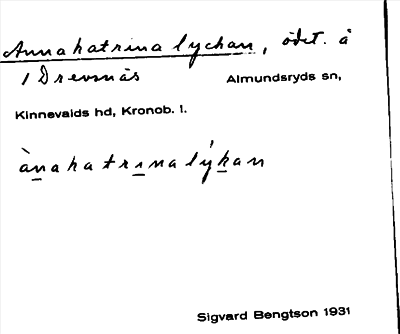 Annakatrinalyckan, ödet. å
/ Drevsnäs Almundsryds sn,
Kinnevalds hd, Kronob. l.
ànakatrɩnalýkan
Sigvard Bengtson 1931